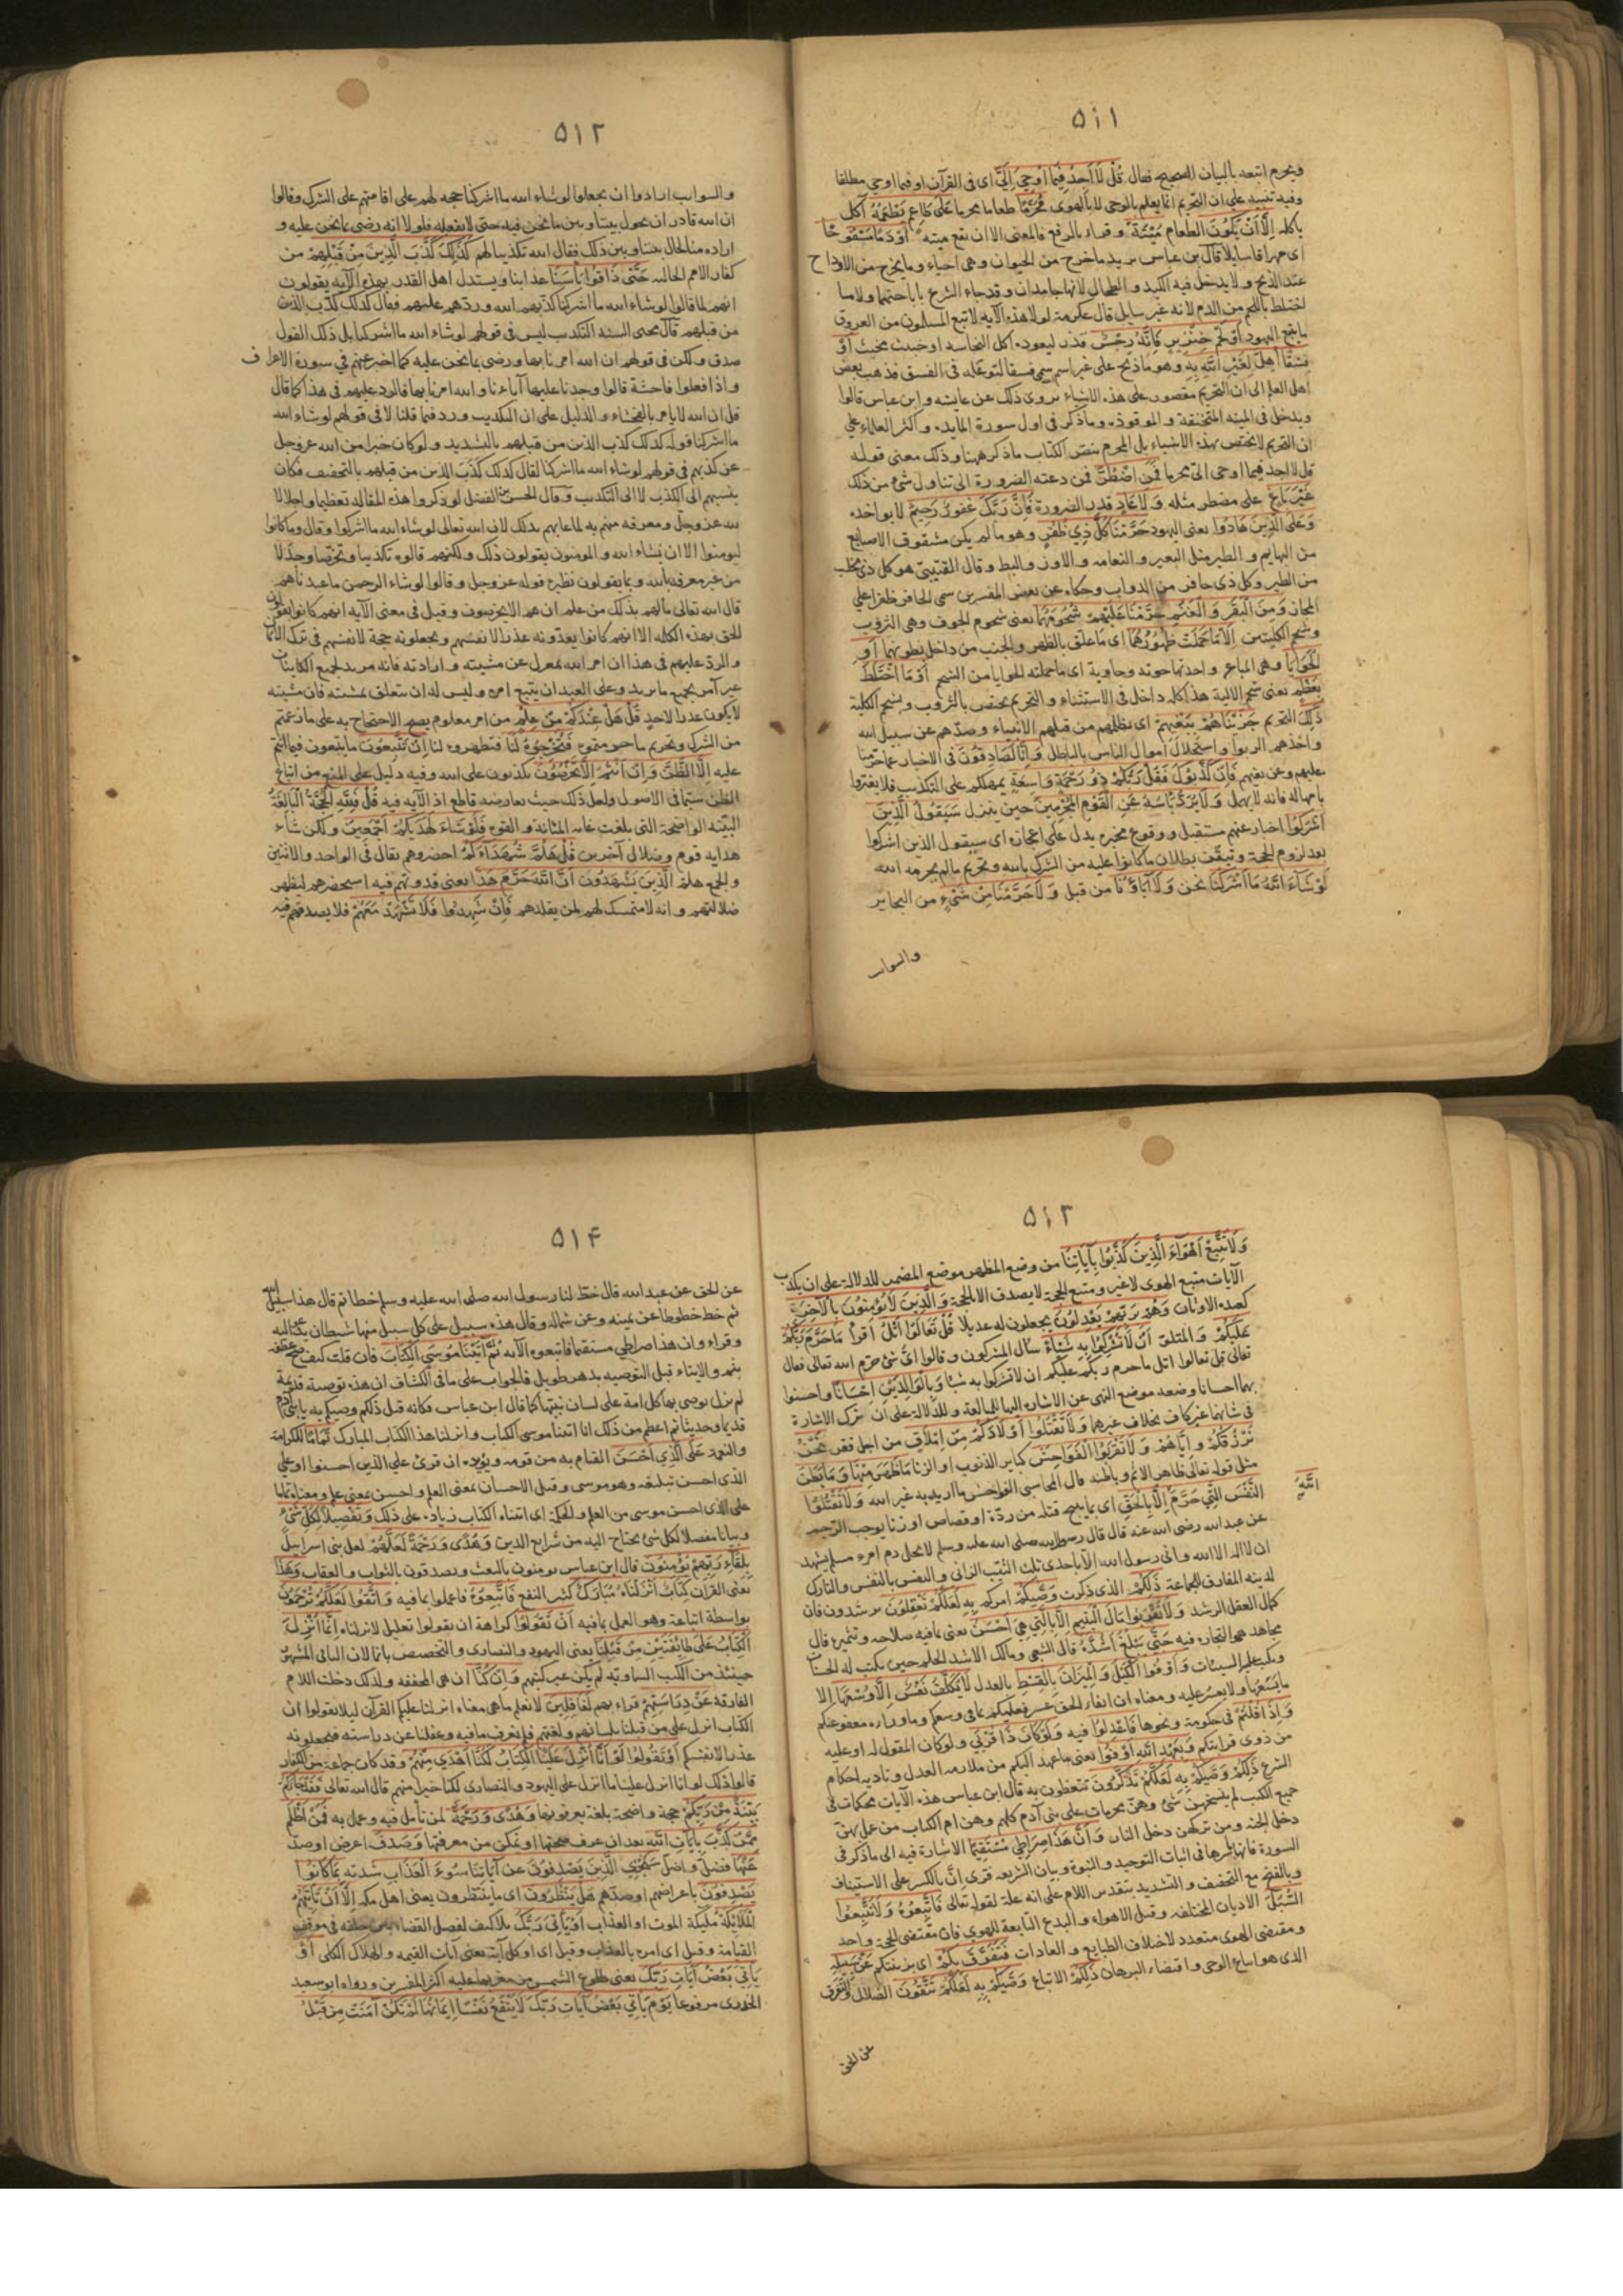 ٥١١
ويحرم اتبعه بالبيان الصحيح فقال قُلْ لَا أَجِدُ فِيمَا أُوحِيَ إِلَيَّ اى فى القرآن او فيما اوحى مطلقا
وفيه تنبيه على ان التحريم انما يعلم بالوحى لا بالهوى مُحَرَّمًا طعاما محرما عَلَى طَاعِمٍ يَطْعَمُهُ آكل
ياكله إِلَّا أَنْ يَكُونَ الطعام مَيْتَةً وقراء بالرفع فالمعنى الا ان تقع ميتة أَوْ دَمًا مَسْفُوحًا
اى مهراقا سايلا قال بن عباس يريد ما خرج من الحيوان وهى احياء وما يخرج من الاوداج
عند الذبح ولا يدخل فيه الكبد والطحال لانهما جامدان وقد جاء الشرع باباحتهما ولا ما
اختلط باللحم من الدم لانه غير سايل قال عكرمة لولا هذه الآيه لاتبع المسلمون من العروق
ما يتبع اليهود أَوْ لَحْمَ خِنْزِيرٍ فَإِنَّهُ رِجْسٌ قذر ليعوده اكل النجاسه او خبيث مخبث أَوْ
فِسْقًا أُهِلَّ لِغَيْرِ اللَّهِ بِهِ وهو ما ذبح على غير اسم سمى فسقا لتوغله فى الفسق فذهب بعض
اهل العلم الى ان التحريم مقصور على هذه الاشياء يروى ذلك عن عايشه وابن عباس قالوا
ويدخل فى الميته المنخنقة والموقوذه وما ذكر فى اول سورة المايده واكثر العلماء على
ان التحريم لا يختص بهذه الاشياء بل المحرم بنص الكتاب ما ذكر ههنا وذلك معنى قوله
قل لا اجد فيما اوحى الى محرما فَمَنِ اضْطُرَّ فمن دعته الضرورة الى تناول شئ من ذلك
غَيْرَ بَاغٍ على مضطر مثله وَلَا عَادٍ قدر الضرورة فَإِنَّ رَبَّكَ غَفُورٌ رَحِيمٌ لا يواخذه
وَعَلَى الَّذِينَ هَادُوا يعنى اليهود حَرَّمْنَا كُلَّ ذِي ظُفُرٍ وهو ما لم يكن مشقوق الاصابع
من البهايم والطير مثل البعير والنعامه والاوز والبط وقال القتيبى هو كل ذى مخلب
من الطير وكل ذى حافر من الدواب وحكاه عن بعض المفسرين سمى الحافر ظفرا على
المجاز وَمِنَ الْبَقَرِ وَالْغَنَمِ حَرَّمْنَا عَلَيْهِمْ شُحُومَهُمَا يعنى شحوم الجوف وهى الثروب
وشحم الكليتين إِلَّا مَا حَمَلَتْ ظُهُورُهُمَا اى ما علق بالظهر والجنب من داخل بطونهما أَوِ
الْحَوَايَا وهى المباعر واحدتها حويه وحاوية اى ما حملته الحوايا من الشحم أَوْ مَا اخْتَلَطَ
بِعَظْمٍ يعنى شحم الالية هذا كله داخل فى الاستثناء والتحريم يختص بالثروب وشحم الكلية
ذَلِكَ التحريم جَزَيْنَاهُمْ بِبَغْيِهِمْ اى بظلمهم من قبلهم الانبياء وصدهم عن سبيل الله
واخذهم الربوا واستحلال اموال الناس بالباطل وَإِنَّا لَصَادِقُونَ فى الاخبار عما حرمنا
عليهم وعن بغيهم فَإِنْ كَذَّبُوكَ فَقُلْ رَبُّكُمْ ذُو رَحْمَةٍ وَاسِعَةٍ يمهلكم على التكذيب فلا يغتروا
بامهاله فانه لا يهمل وَلَا يُرَدُّ بَأْسُهُ عَنِ الْقَوْمِ الْمُجْرِمِينَ حين ينزل سَيَقُولُ الَّذِينَ
أَشْرَكُوا اخبار عنهم مستقبل ووقوع مخبره يدل على اعجازه اى سيقول الذين اشركوا
بعد لزوم الحجة وتيقن بطلان ما كانوا عليه من الشرك بالله وتحريم ما لم يحرمه الله
لَوْ شَاءَ اللَّهُ مَا أَشْرَكْنَا نحن وَلَا آبَاؤُنَا من قبل وَلَا حَرَّمْنَا مِنْ شَيْءٍ من البحاير
والسوايب
٥١٢
والسوايب ارادوا ان يجعلوا لو شاء الله ما اشركنا حجه لهم على اقامتهم على الشرك وقالوا
ان الله قادر ان يحول بيننا وبين ما نحن فيه حتى لا نفعله فلولا انه رضى بما نحن عليه و
اراده منا لحال بيننا وبين ذلك فقال الله تكذيبا لهم كَذَلِكَ كَذَّبَ الَّذِينَ مِنْ قَبْلِهِمْ من
كفار الامم الخاليه حَتَّى ذَاقُوا بَأْسَنَا عذابنا ويستدل اهل القدر بهذه الآيه يقولون
انهم لما قالوا لو شاء الله ما اشركنا كذبهم الله ورد هم عليهم فقال كذلك كذب الذين
من قبلهم قال محيى السنه التكذيب ليس فى قولهم لو شاء الله ما اشركنا بل ذلك القول
صدق ولكن فى قولهم ان الله امرنا بها ورضى بما نحن عليه كما اخبر عنهم فى سورة الاعراف
واذا فعلوا فاحشة قالوا وجدنا عليها آباءنا والله امرنا بها فالرد عليهم فى هذا كما قال
قل ان الله لا يامر بالفحشاء والدليل على ان التكذيب ورد فيما قلنا لا فى قولهم لو شاء الله
ما اشركنا قوله كذلك كذب الذين من قبلهم بالتشديد ولو كان خبرا من الله عز وجل
عن كذبهم فى قولهم لو شاء الله ما اشركنا لقال كذلك كَذَبَ الذين من قبلهم بالتخفيف فكان
ينسبهم الى الكذب لا الى التكذيب وقال الحسن بن الفضل لو ذكروا هذه المقاله تعظيما واجلالا
لله عز وجل ومعرفه منهم به لما عابهم بذلك لان الله تعالى لو شاء الله ما اشركوا وقال وما كانوا
ليومنوا الا ان يشاء الله والمومنون يقولون ذلك ولكنهم قالوه تكذيبا وتخرصا وجدلا
من غير معرفه بالله وبما يقولون نظيره قوله عز وجل وقالوا لو شاء الرحمن ما عبدناهم
قال الله تعالى مالهم بذلك من علم ان هم الا يخرصون وقيل فى معنى الآيه انهم كانوا يقولون
الحق بهذه الكلمه الا انهم كانوا يعدونه عذرا لانفسهم ويجعلونه حجة لانفسهم فى ترك الايمان
والرد عليهم فى هذا ان امر الله بمعزل عن مشيته وارادته فانه مريد لجميع الكاينات
غير آمر بجميع ما يريد وعلى العبد ان يتبع امره وليس له ان يتعلق بمشيته فان مشيته
لا يكون عذرا لاحد قُلْ هَلْ عِنْدَكُمْ مِنْ عِلْمٍ من امر معلوم يصح الاحتجاج به على ما زعمتم
من الشرك وتحريم ما حرمتموه فَتُخْرِجُوهُ لَنَا فتظهروه لنا إِنْ تَتَّبِعُونَ ما يتبعون فيما انتم
عليه إِلَّا الظَّنَّ وَإِنْ أَنْتُمْ إِلَّا تَخْرُصُونَ تكذبون على الله وفيه دليل على المنع من اتباع
الظن سيما فى الاصول ولعل ذلك حيث يعارضه قاطع اذ الآيه فيه قُلْ فَلِلَّهِ الْحُجَّةُ الْبَالِغَةُ
البينه الواضحة التى بلغت غايه المتانة والقوه فَلَوْ شَاءَ لَهَدَيكُمْ أَجْمَعِينَ ولكن شاء
هدايه قوم وضلال آخرين قُلْ هَلُمَّ شُهَدَاءَكُمُ احضروهم يقال فى الواحد والاثنين
والجمع هلم الَّذِينَ يَشْهَدُونَ أَنَّ اللَّهَ حَرَّمَ هَذَا يعنى قدوتهم فيه استحضرهم ليظهر
ضلالتهم وانه لا متمسك لهم لمن يقلدهم فَإِنْ شَهِدُوا فَلَا تَشْهَدْ مَعَهُمْ فلا يصدقهم فيه
٥١٣
وَلَا تَتَّبِعْ أَهْوَاءَ الَّذِينَ كَذَّبُوا بِآيَاتِنَا من وضع المظهر موضع المضمر للدلالة على ان مكذب
الآيات متبع الهوى لا غير ومتبع الحجة لا يصدق الا بالحجة وَالَّذِينَ لَا يُؤْمِنُونَ بِالْآخِرَةِ
كعبده الاوثان وَهُمْ بِرَبِّهِمْ يَعْدِلُونَ يجعلون له عديلا قُلْ تَعَالَوْا أَتْلُ أقرأ مَا حَرَّمَ رَبُّكُمْ
عَلَيْكُمْ والمتلو أَنْ لَا تُشْرِكُوا بِهِ شَيْئًا سال المشركون وقالوا اى شئ حرم الله تعالى فقال
تعالى قل تعالوا اتل ما حرم ربكم عليكم ان لا تشركوا به شيئا وَبِالْوَالِدَيْنِ إِحْسَانًا واحسنوا
بهما احسانا وضعه موضع النهى عن الاساءة اليهما للمبالغة وللدلالة على ان ترك الاساءة
فى شانهما غير كاف بخلاف غيرهما وَلَا تَقْتُلُوا أَوْلَادَكُمْ مِنْ إِمْلَاقٍ من اجل فقر نَحْنُ
نَرْزُقُكُمْ وَإِيَّاهُمْ وَلَا تَقْرَبُوا الْفَوَاحِشَ كباير الذنوب او الزنا مَا ظَهَرَ مِنْهَا وَمَا بَطَنَ
مثل قوله تعالى ظاهر الاثم وباطنه قال المحاسبى الفواحش ما اريد به غير الله وَلَا تَقْتُلُوا
النَّفْسَ الَّتِي حَرَّمَ إِلَّا بِالْحَقِّ اى بما يبيح قتله من ردة او قصاص او زنا يوجب الرجم
اللَّهُ
عن عبد الله رضى الله عنه قال قال رسول الله صلى الله عليه وسلم لا يحل دم امرء مسلم يشهد
ان لا اله الا الله وانى رسول الله الا باحدى ثلث الثيب الزانى والنفس بالنفس والتارك
لدينه المفارق للجماعة ذَلِكُمْ الذى ذكرت وَصَّيكُمْ امركم بِهِ لَعَلَّكُمْ تَعْقِلُونَ ترشدون فان
كمال العقل الرشد وَلَا تَقْرَبُوا مَالَ الْيَتِيمِ إِلَّا بِالَّتِي هِيَ أَحْسَنُ يعنى بما فيه صلاحه وتثميره قال
مجاهد هو التجاره فيه حَتَّى يَبْلُغَ أَشُدَّهُ قال الشعبى ومالك الاشد الحلم حين يكتب له الحسنات
ويكتب عليه السيئات وَأَوْفُوا الْكَيْلَ وَالْمِيزَانَ بِالْقِسْطِ بالعدل لَا نُكَلِّفُ نَفْسًا إِلَّا وُسْعَهَا الا
ما يسعها ولا يعسر عليه ومعناه ان ايفاء الحق عسر فعليكم بما فى وسعكم وما وراءه معفو عنكم
وَإِذَا قُلْتُمْ فى حكومة ونحوها فَاعْدِلُوا فيه وَلَوْ كَانَ ذَا قُرْبَى ولو كان المقول له او عليه
من ذوى قرابتكم وَبِعَهْدِ اللَّهِ أَوْفُوا يعنى ما عهد اليكم من ملازمه العدل وتاديه احكام
الشرع ذَلِكُمْ وَصَّيكُمْ بِهِ لَعَلَّكُمْ تَذَكَّرُونَ تتعظون به قال ابن عباس هذه الآيات محكمات فى
جميع الكتب لم ينسخهن شئ وهن محرمات على بنى آدم كلهم وهن ام الكتاب من عمل بهن
دخل الجنه ومن تركهن دخل النار وَأَنَّ هَذَا صِرَاطِي مُسْتَقِيمًا الاشارة فيه الى ما ذكر فى
السورة فانها باسرها فى اثبات التوحيد والنبوة وبيان الشريعه قرئ إنّ بالكسر على الاستيناف
وبالفتح مع التخفيف والتشديد بتقدير اللام على انه علة لقوله تعالى فَاتَّبِعُوهُ وَلَا تَتَّبِعُوا
السُّبُلَ الاديان المختلفه وقيل الاهواء والبدع التابعة للهوى فان مقتضى الحجة واحد
ومقتضى الهوى متعدد لاختلاف الطبايع والعادات فَتَفَرَّقَ بِكُمْ اى يزيغكم عَنْ سَبِيلِهِ
الذى هو اتباع الوحى واقتضاء البرهان ذَلِكُمْ الاتباع وَصَّيكُمْ بِهِ لَعَلَّكُمْ تَتَّقُونَ الضلال والتفرق
عن الحق
٥١۴
عن الحق عن عبد الله قال خط لنا رسول الله صلى الله عليه وسلم خطا ثم قال هذا سبيل الله
ثم خط خطوطا عن يمينه وعن شماله وقال هذه سبيل على كل سبيل منها شيطان يدعو اليه
وقراء وان هذا صراطي مستقيما فاتبعوه الآيه ثُمَّ آتَيْنَا مُوسَى الْكِتَابَ فان قلت كيف صح عطفه
بثم والايتاء قبل التوصيه بدهر طويل فالجواب على ما فى الكشاف ان هذه توصية قديمة
لم يزل يوصى بها كل امة على لسان نبيها كما قال ابن عباس فكانه قيل ذلكم وصيكم به يا بنى آدم
قديما وحديثا ثم اعظم من ذلك انا اتينا موسى الكتاب وانزلنا هذا الكتاب المبارك تَمَامًا للكرامة
والنعمة عَلَى الَّذِي أَحْسَنَ القيام به من قومه ويؤيده ان قرئ على الذين احسنوا او على
الذى احسن تبليغه وهو موسى وقيل الاحسان بمعنى العلم واحسن بمعنى علم ومعناه تماما
على الذى احسن موسى من العلم والحكمة اى اتيناه الكتاب زياده على ذلك وَتَفْصِيلًا لِكُلِّ شَيْءٍ
وبيانا مفصلا لكل شئ يحتاج اليه من شرايع الدين وَهُدًى وَرَحْمَةً لَعَلَّهُمْ لعل بنى اسرايل
بِلِقَاءِ رَبِّهِمْ يُؤْمِنُونَ قال ابن عباس يومنون بالبعث ويصدقون بالثواب والعقاب وَهَذَا
يعنى القرآن كِتَابٌ أَنْزَلْنَاهُ مُبَارَكٌ كثير النفع فَاتَّبِعُوهُ فاعملوا بما فيه وَاتَّقُوا لَعَلَّكُمْ تُرْحَمُونَ
بواسطة اتباعه وهو العمل بما فيه أَنْ تَقُولُوا كراهة ان يقولوا تعليل لانزلناه إِنَّمَا أُنْزِلَ
الْكِتَابُ عَلَى طَائِفَتَيْنِ مِنْ قَبْلِنَا يعنى اليهود والنصارى والتخصيص بانما لان الباقى المشهور
حينئذ من الكتب السماويه لم يكن غير كتبهم وَإِنْ كُنَّا ان هى المخففه ولذلك دخلت اللام
الفارقة عَنْ دِرَاسَتِهِمْ قراءتهم لَغَافِلِينَ لا نعلم ما هى معناه انزلنا عليكم القرآن ليلا يقولوا ان
الكتاب انزل على من قبلنا بلسانهم ولغتهم فلم نعرف ما فيه وغفلنا عن دراسته فتجعلونه
عذرا لانفسكم أَوْ تَقُولُوا لَوْ أَنَّا أُنْزِلَ عَلَيْنَا الْكِتَابُ لَكُنَّا أَهْدَى مِنْهُمْ وقد كان جماعة من الكفار
قالوا ذلك لو انا انزل علينا ما انزل على اليهود والنصارى لكنا خيرا منهم قال الله تعالى فَقَدْ جَاءَكُمْ
بَيِّنَةٌ مِنْ رَبِّكُمْ حجة واضحة بلغة يعرفونها وَهُدًى وَرَحْمَةٌ لمن تأمل فيه وعمل به فَمَنْ أَظْلَمُ
مِمَّنْ كَذَّبَ بِآيَاتِ اللَّهِ بعد ان عرف صحتها او تمكن من معرفتها وَصَدَفَ اعرض او صد
عَنْهَا فضل واضل سَنَجْزِي الَّذِينَ يَصْدِفُونَ عَنْ آيَاتِنَا سُوءَ الْعَذَابِ شدته بِمَا كَانُوا
يَصْدِفُونَ باعراضهم او صدهم هَلْ يَنْظُرُونَ اى ما ينتظرون يعنى اهل مكه إِلَّا أَنْ تَأْتِيَهُمُ
الْمَلَائِكَةُ مليكة الموت او العذاب أَوْ يَأْتِيَ رَبُّكَ بلا كيف لفصل القضاء بين خلقه فى موقف
القيامة وقيل اى امره بالعذاب وقيل اى او كل آيه يعنى آيات القيمه والهلاك الكلى أَوْ
يَأْتِيَ بَعْضُ آيَاتِ رَبِّكَ يعنى طلوع الشمس من مغربها عليه اكثر المفسرين ورواه ابو سعيد
الخدرى مرفوعا يَوْمَ يَأْتِي بَعْضُ آيَاتِ رَبِّكَ لَا يَنْفَعُ نَفْسًا إِيمَانُهَا لَمْ تَكُنْ آمَنَتْ مِنْ قَبْلُ